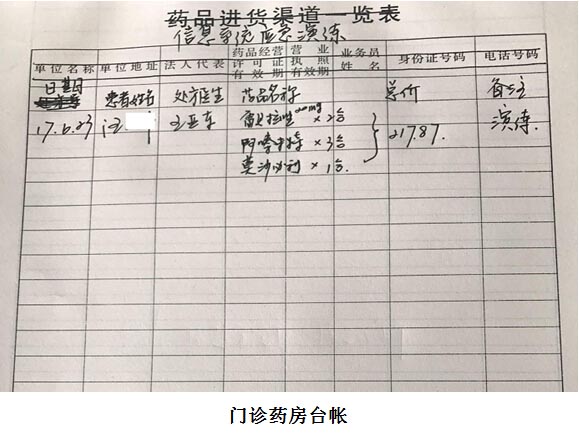 药品进货渠道一览表
信息系统应急演练
单位名称 单位地址 法人代表 药品经营许可证有效期 营业执照有效期 业务员姓名 身份证号码 电话号码
日期 患者姓名 处方医生 药品名称 总价 备注
17.6.23 汪 王亚东 雷贝拉唑20mg×2盒 217.87. 演练.
×3盒
莫沙必利×1盒
门诊药房台帐